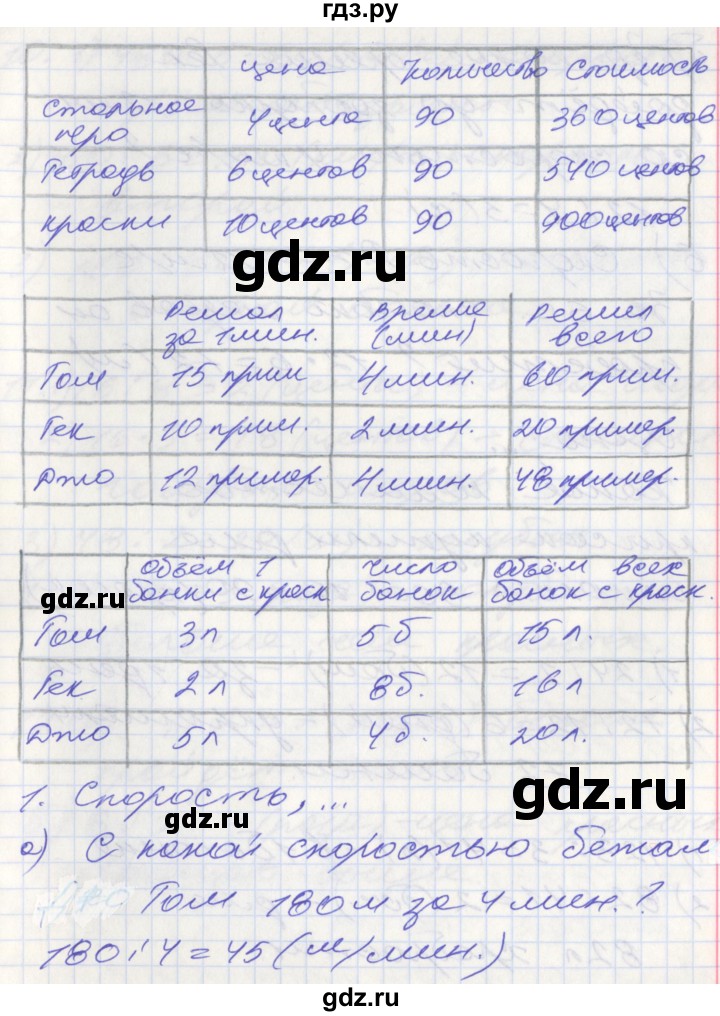 гдз.ру
цена Количество Стоимость
Стальное перо 4 цента 90 360 центов
Тетрадь 6 центов 90 540 центов
краски 10 центов 90 900 центов
gdz.ru
Решал за 1 мин. Время (мин) Решил всего
Том 15 прим 4 мин. 60 прим.
Гек 10 прим. 2 мин. 20 пример
Джо 12 пример. 4 мин. 48 пример.
Объём 1 банки с краск Число банок Объём всех банок с краск.
gdz.ru
Том 3 л 5 б 15 л.
Гек 2 л 8 б. 16 л
Джо 5 л 4 б. 20 л.
gdz.ru
1. Скорость, ...
gdz.ru
а) С какой скоростью бежал
Том 180 м за 4 мин.?
180:4=45 (м/мин.)
gdz.ru